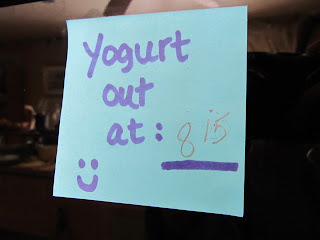 Yogurt
out
at: 8 15